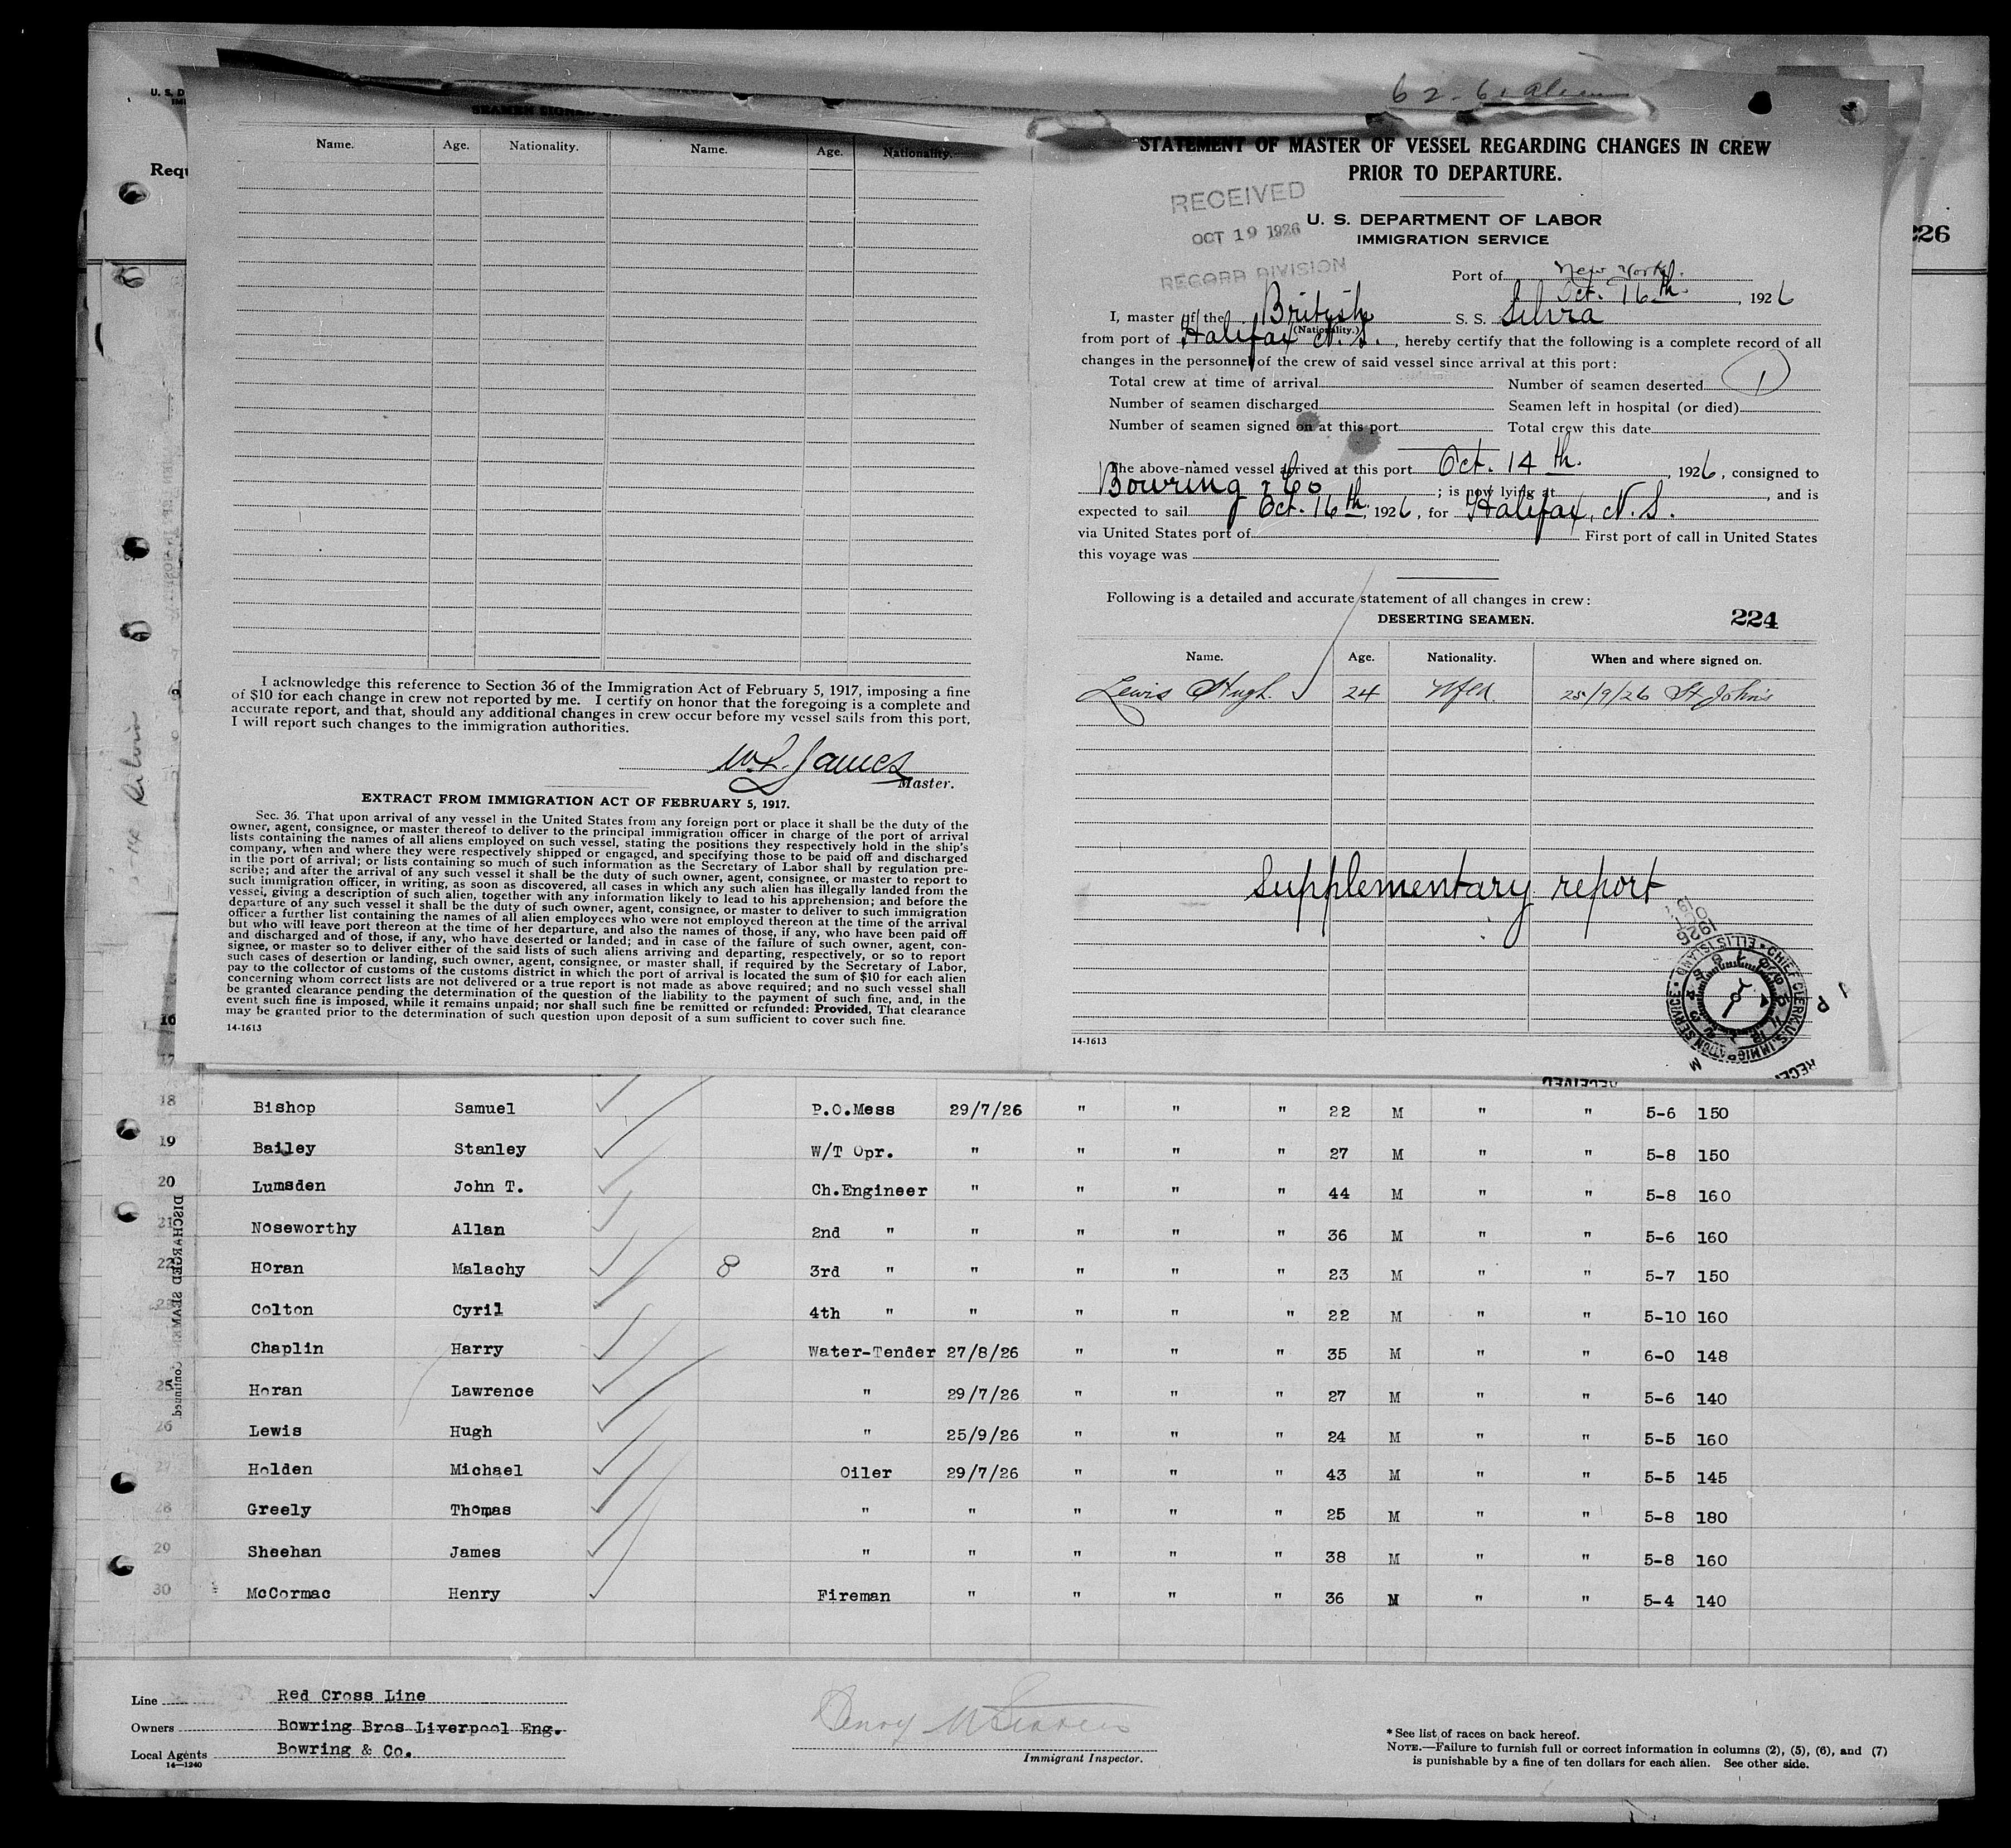 U. S. D
Requ
226
62-61 alien
SEAMEN SIGNED
Name. Age. Nationality. Name. Age. Nationality.
I acknowledge this reference to Section 36 of the Immigration Act of February 5, 1917, imposing a fine
of $10 for each change in crew not reported by me. I certify on honor that the foregoing is a complete and
accurate report, and that, should any additional changes in crew occur before my vessel sails from this port,
I will report such changes to the immigration authorities.
W. L. James
Master.
EXTRACT FROM IMMIGRATION ACT OF FEBRUARY 5, 1917.
Sec. 36. That upon arrival of any vessel in the United States from any foreign port or place it shall be the duty of the
owner, agent, consignee, or master thereof to deliver to the principal immigration officer in charge of the port of arrival
lists containing the names of all aliens employed on such vessel, stating the positions they respectively hold in the ship's
company, when and where they were respectively shipped or engaged, and specifying those to be paid off and discharged
in the port of arrival; or lists containing so much of such information as the Secretary of Labor shall by regulation pre-
scribe; and after the arrival of any such vessel it shall be the duty of such owner, agent, consignee, or master to report to
such immigration officer, in writing, as soon as discovered, all cases in which any such alien has illegally landed from the
vessel, giving a description of such alien, together with any information likely to lead to his apprehension; and before the
departure of any such vessel it shall be the duty of such owner, agent, consignee, or master to deliver to such immigration
officer a further list containing the names of all alien employees who were not employed thereon at the time of the arrival
but who will leave port thereon at the time of her departure, and also the names of those, if any, who have been paid off
and discharged and of those, if any, who have deserted or landed; and in case of the failure of such owner, agent, con-
signee, or master so to deliver either of the said lists of such aliens arriving and departing, respectively, or so to report
such cases of desertion or landing, such owner, agent, consignee, or master shall, if required by the Secretary of Labor,
pay to the collector of customs of the customs district in which the port of arrival is located the sum of $10 for each alien
concerning whom correct lists are not delivered or a true report is not made as above required; and no such vessel shall
be granted clearance pending the determination of the question of the liability to the payment of such fine, and, in the
event such fine is imposed, while it remains unpaid; nor shall such fine be remitted or refunded: Provided, That clearance
may be granted prior to the determination of such question upon deposit of a sum sufficient to cover such fine.
14-1613
STATEMENT OF MASTER OF VESSEL REGARDING CHANGES IN CREW
PRIOR TO DEPARTURE.
RECEIVED
OCT 19 1926
RECORD DIVISION
U. S. DEPARTMENT OF LABOR
IMMIGRATION SERVICE
Port of New York.
Oct. 16th. , 1926
I, master of the British S. S. Silvia
(Nationality.)
from port of Halifax N. S. , hereby certify that the following is a complete record of all
changes in the personnel of the crew of said vessel since arrival at this port:
Total crew at time of arrival Number of seamen deserted 1
Number of seamen discharged Seamen left in hospital (or died)
Number of seamen signed on at this port Total crew this date
The above-named vessel arrived at this port Oct. 14th. , 1926, consigned to
Bowring & Co ; is now lying at , and is
expected to sail Oct. 16th, 1926, for Halifax, N. S.
via United States port of First port of call in United States
this voyage was
Following is a detailed and accurate statement of all changes in crew:
DESERTING SEAMEN. 224
Name. Age. Nationality. When and where signed on.
Lewis Hugh 24 Nfld. 25/9/26 St John's
Supplementary report
1926
CHIEF CLERK U.S. IMMIGRATION SERVICE • ELLIS ISLAND
14-1613
RECEIVED
DISCHARGED SEAMEN Continued
18 Bishop Samuel P.O.Mess 29/7/26 " " " 22 M " " 5-6 150
19 Bailey Stanley W/T Opr. " " " " 27 M " " 5-8 150
20 Lumsden John T. Ch.Engineer " " " " 44 M " " 5-8 160
21 Noseworthy Allan 2nd " " " " " 36 M " " 5-6 160
22 Horan Malachy 8 3rd " " " " " 23 M " " 5-7 150
23 Colton Cyril 4th " " " " " 22 M " " 5-10 160
Chaplin Harry Water-Tender 27/8/26 " " " 35 M " " 6-0 148
25 Horan Lawrence " 29/7/26 " " " 27 M " " 5-6 140
26 Lewis Hugh " 25/9/26 " " " 24 M " " 5-5 160
27 Holden Michael Oiler 29/7/26 " " " 43 M " " 5-5 145
28 Greely Thomas " " " " " 25 M " " 5-8 180
29 Sheehan James " " " " " 38 M " " 5-8 160
30 McCormac Henry Fireman " " " " 36 M " " 5-4 140
Line Red Cross Line
Owners Bowring Bros Liverpool Eng.
Local Agents Bowring & Co.
14—1240
Immigrant Inspector.
* See list of races on back hereof.
NOTE.—Failure to furnish full or correct information in columns (2), (5), (6), and (7)
is punishable by a fine of ten dollars for each alien. See other side.